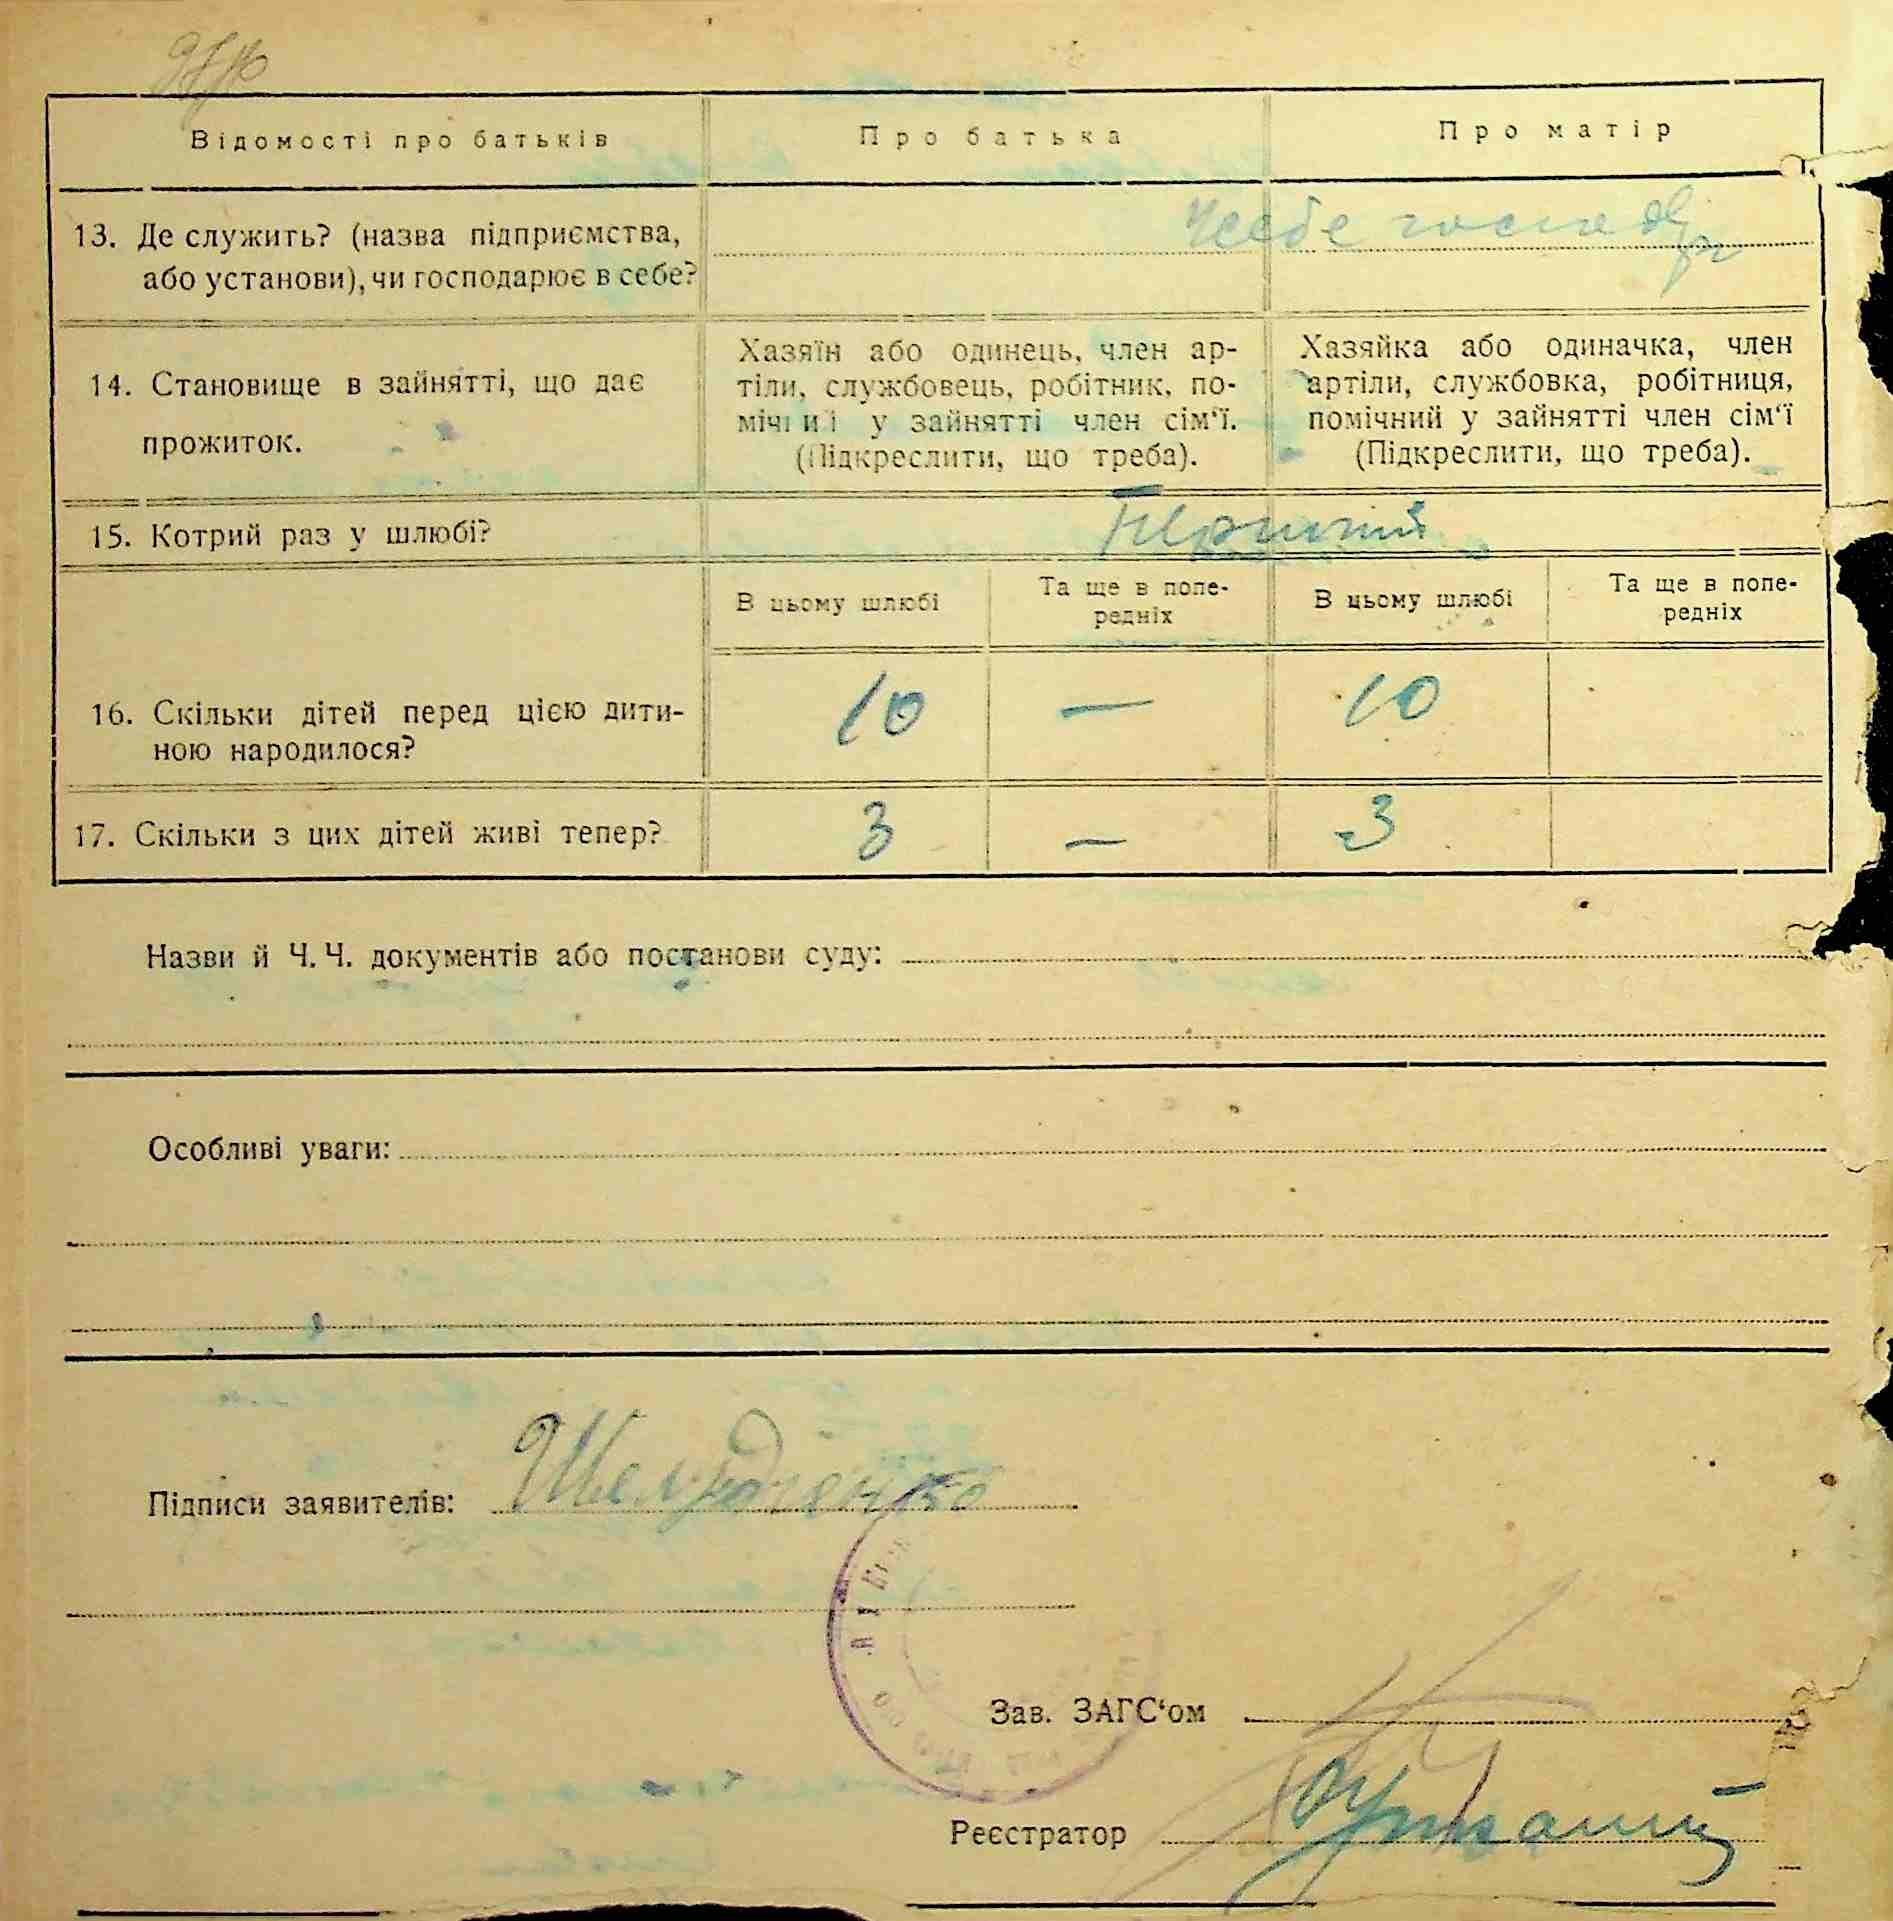 Відомості про батьків
Про батька
Про матір
13. Де служить? (назва підприємства,
або установи), чи господарює в себе?
14. Становище в зайнятті, що дає
прожиток.
Хазяїн або одинець, член ар-
тіли, службовець, робітник, по-
мічний у зайнятті член сім'ї.
(Підкреслити, що треба).
Хазяйка або одиначка, член
артіли, службовка, робітниця,
помічний у зайнятті член сім'ї
(Підкреслити, що треба).
15. Котрий раз у шлюбі?
В цьому шлюбі
Та ще в попе-
редніх
В цьому шлюбі
Та ще в попе-
редніх
16. Скільки дітей перед цією дити-
ною народилося?
10 — 10
17. Скільки з цих дітей живі тепер?
3 — 3
Назви й Ч. Ч. документів або постанови суду:
Особливі уваги:
Підписи заявителів: Шелудченко
Зав. ЗАГС'ом
Реєстратор